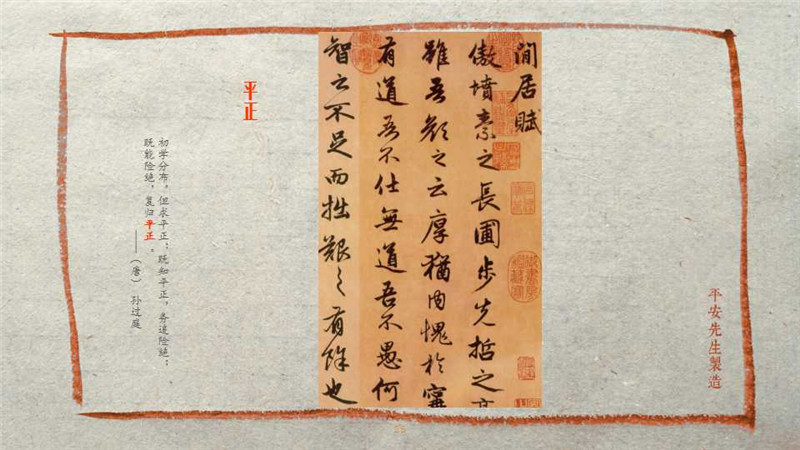 平安先生製造
閒居賦
傲墳素之長圃步先哲之高
雖吾顏之云厚猶內愧於甯
有道吾不仕無道吾不愚何
智之不足而拙艱之有餘也
平正
初学分布，但求平正；既知平正，务追险绝；
既能险绝，复归平正。
——（唐）孙过庭